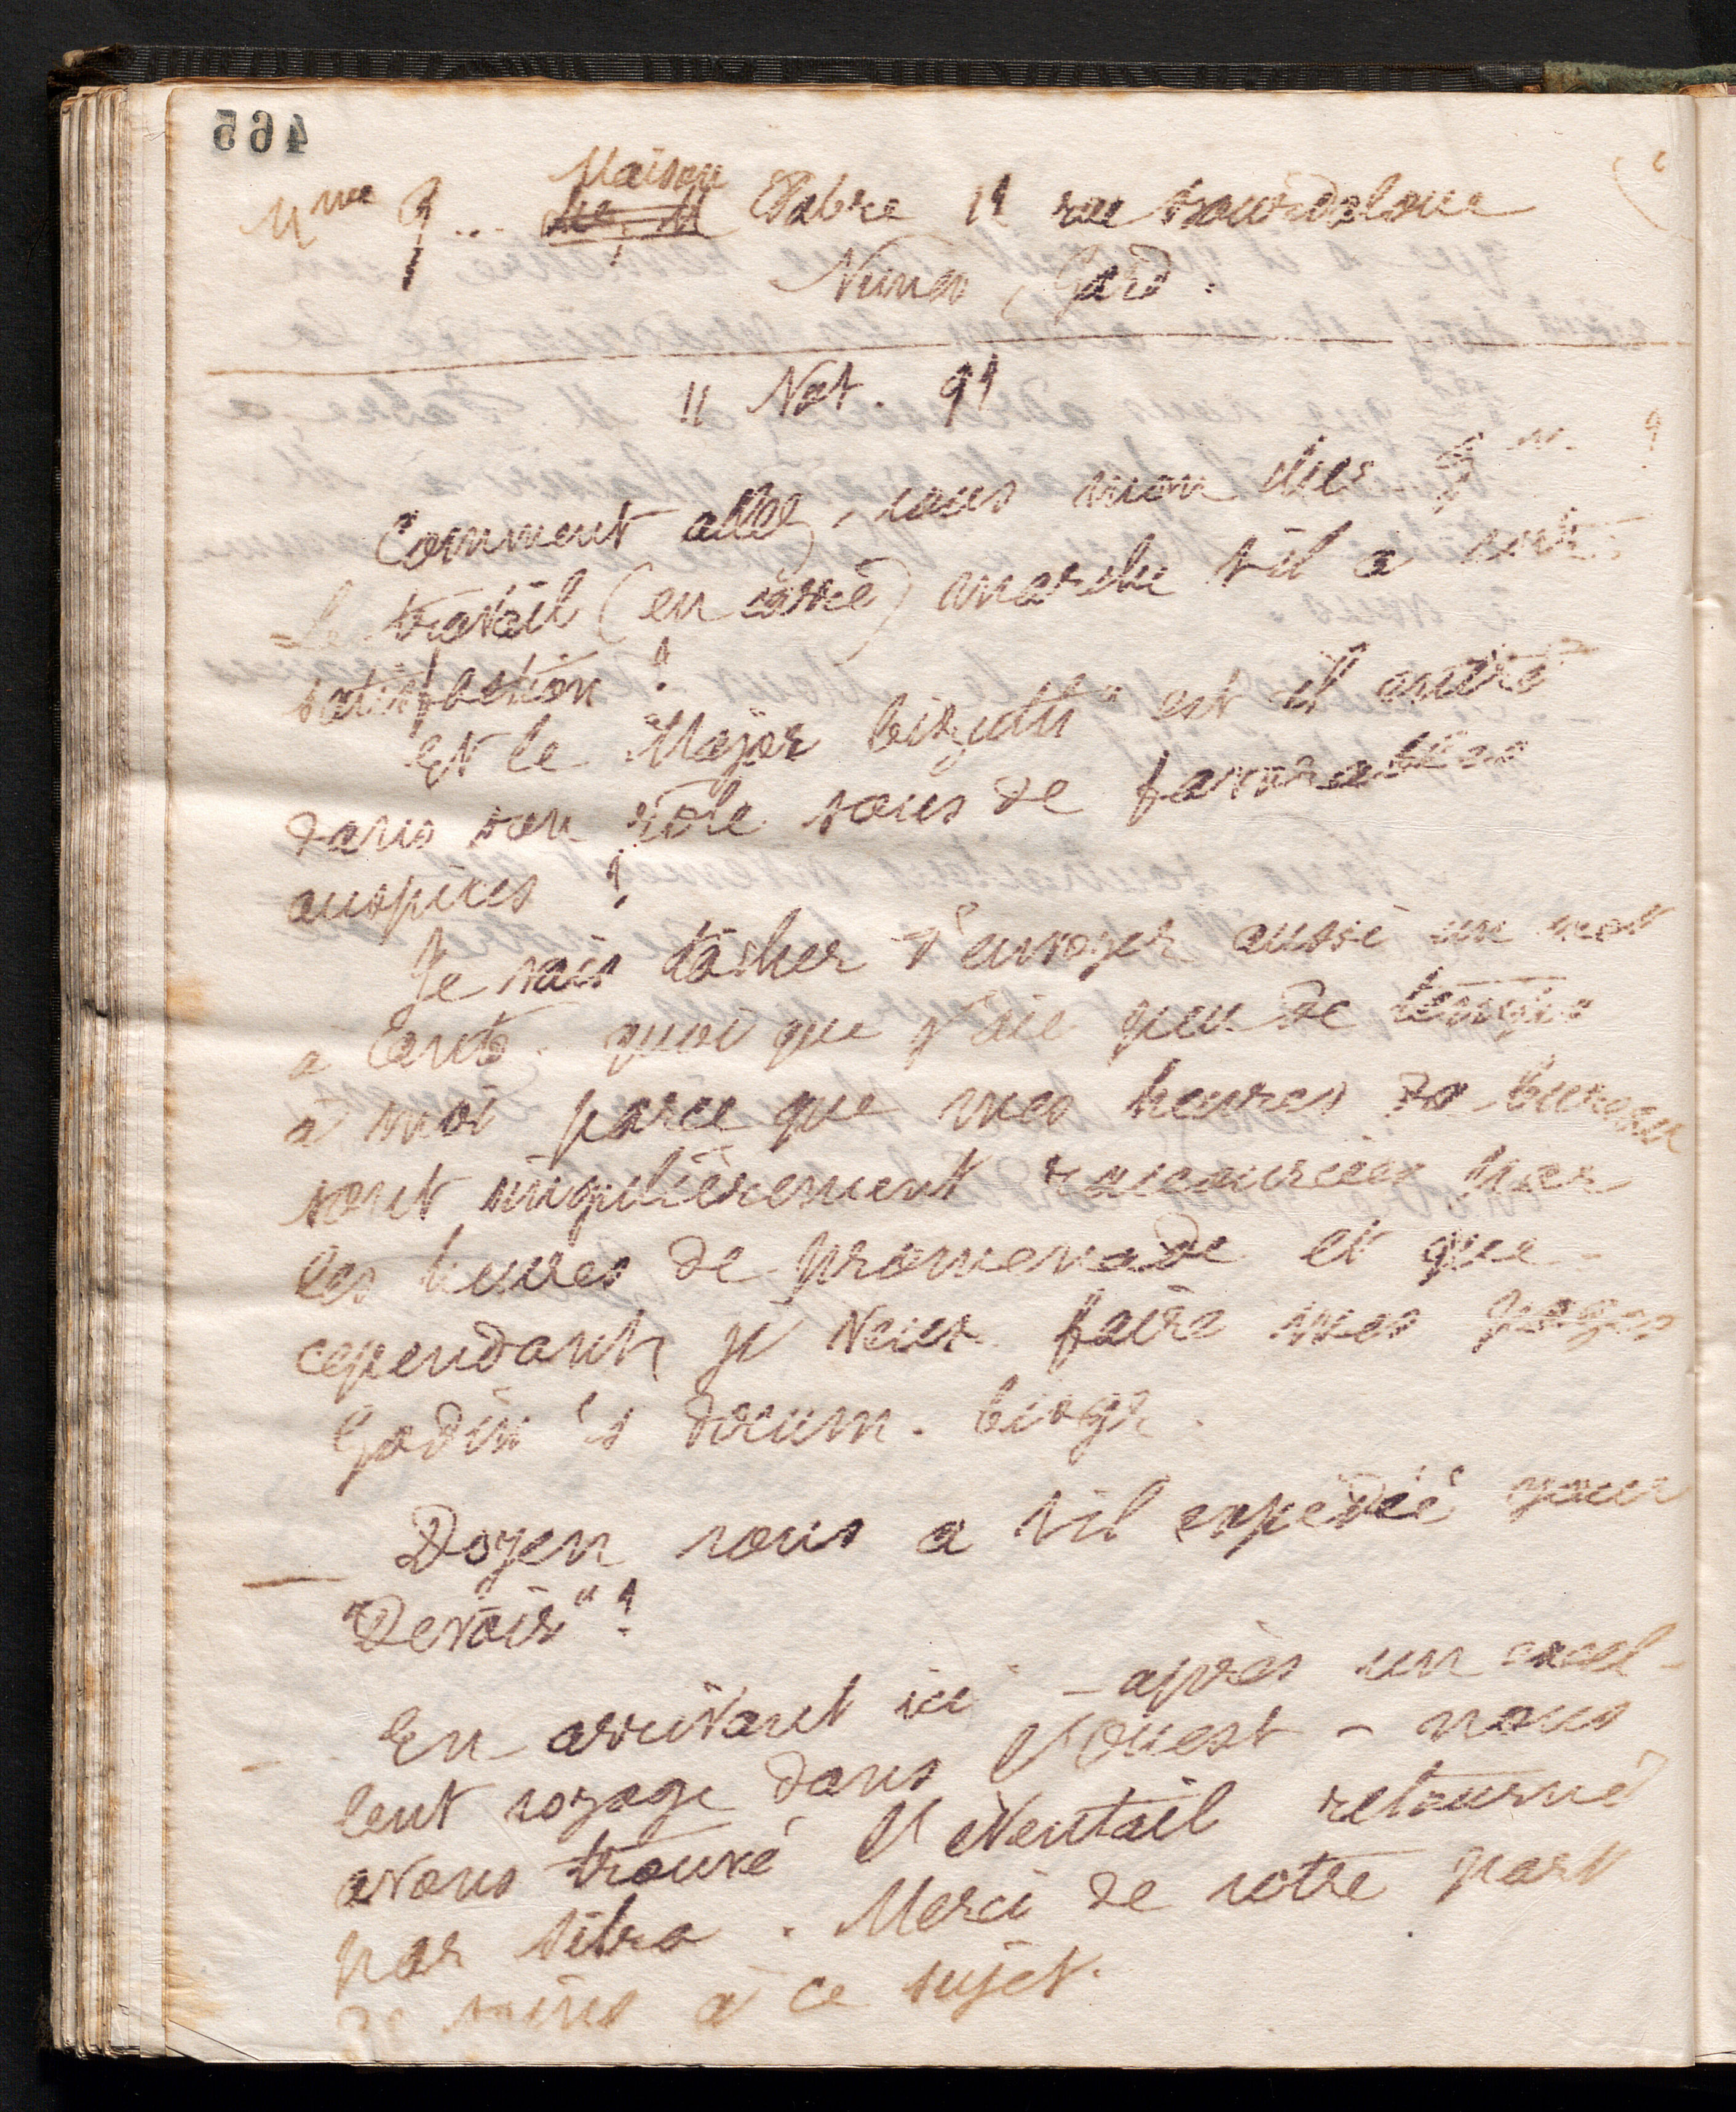 465
Maison
Mme G... Fabre 11 rue Bourdaloue
Nimes, Gard.
11 Nov. 91
Comment allez-vous mon cher
Le travail (en caisse) marche t'il à votre
satisfaction ?
Et le "Major" est il entré
dans son rôle sous de favorables
auspices ?
Je vais tâcher d'envoyer aussi un mot
a quoi que j'aie peu de temps
à moi parce que mes heures de bureau
sont singulièrement raccourcies par
les heures de promenade et que
cependant je veux faire mes pages
Godin's docum. biogr.
Doyen vous a t'il expédié pour
"Devoir" ?
En arrivant ici - après un excel-
lent voyage dans l'ouest - nous
avons trouvé l'éventail retourné
par . Merci de votre part
de soins à ce sujet.